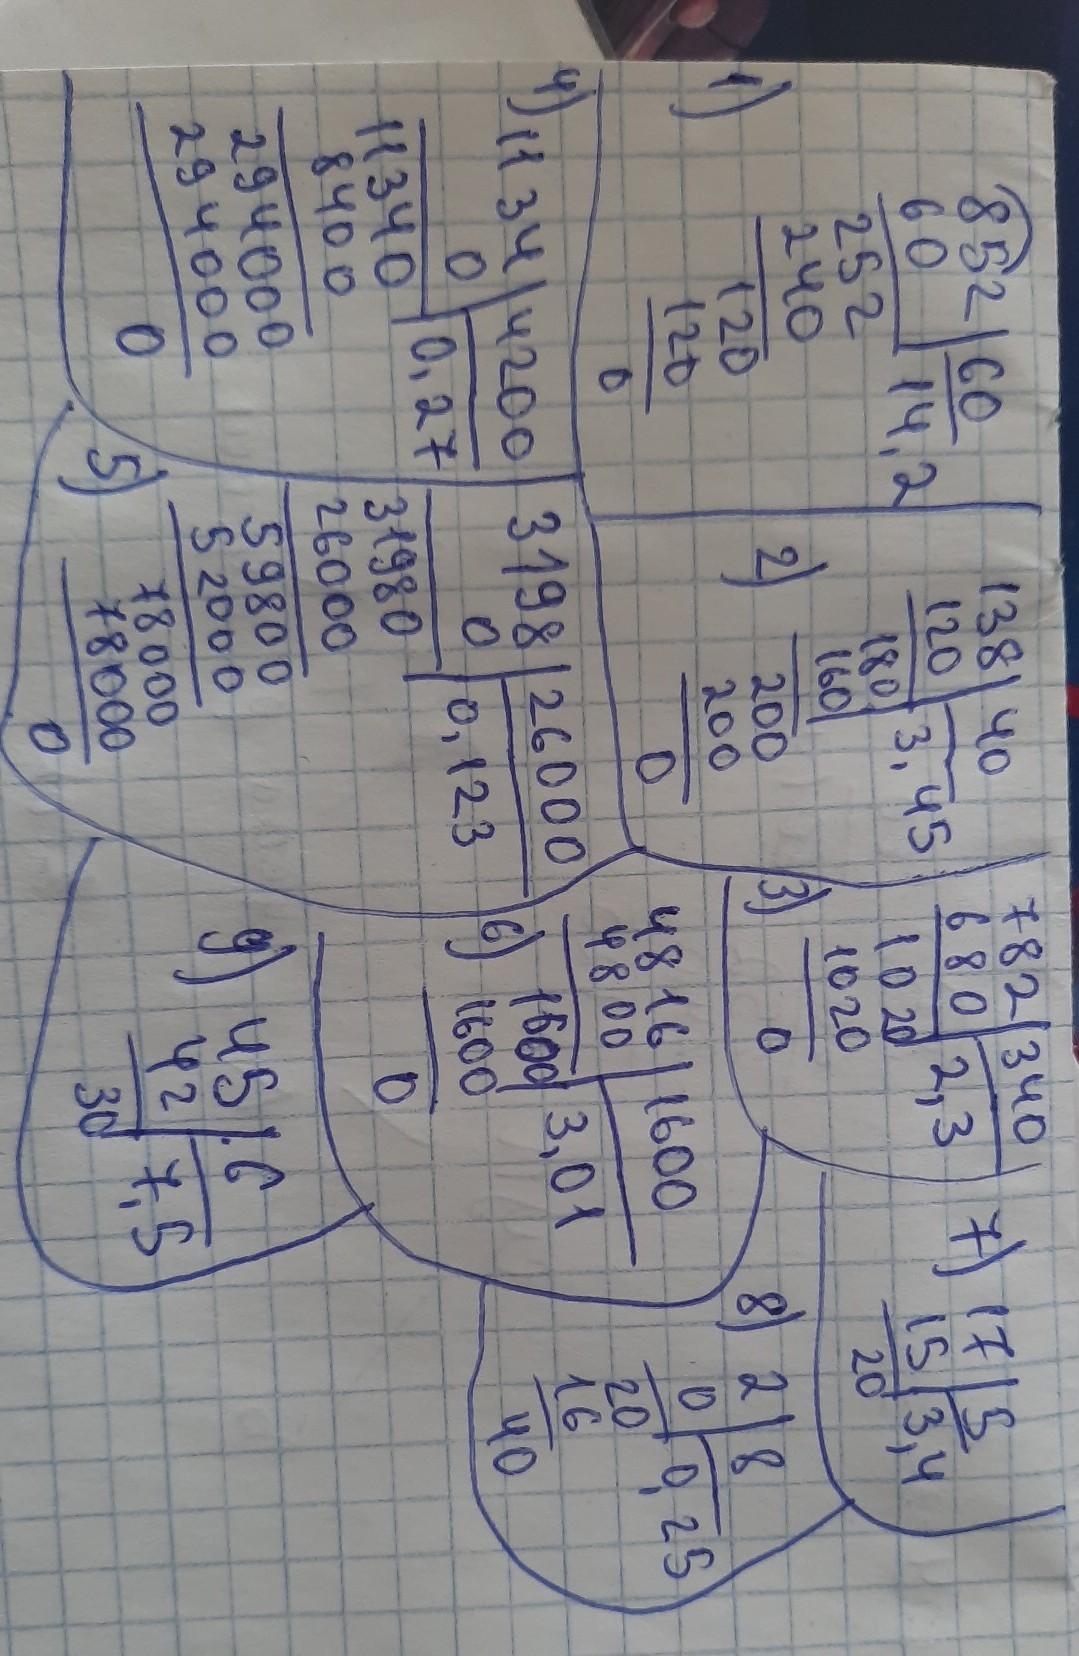 1)
852 | 60
60 14,2
252
240
120
120
0
2)
138 | 40
120 3,45
180
160
200
200
0
3)
782 | 340
680 2,3
1020
1020
0
4) 1134 | 4200
0 0,27
11340
8400
294000
294000
0
5)
3198 | 26000
0 0,123
31980
26000
59800
52000
78000
78000
0
6)
4816 | 1600
4800 3,01
1600
1600
0
7) 17 | 5
15 3,4
20
8) 2 | 8
0 0,25
20
16
40
9) 45 | 6
42 7,5
30